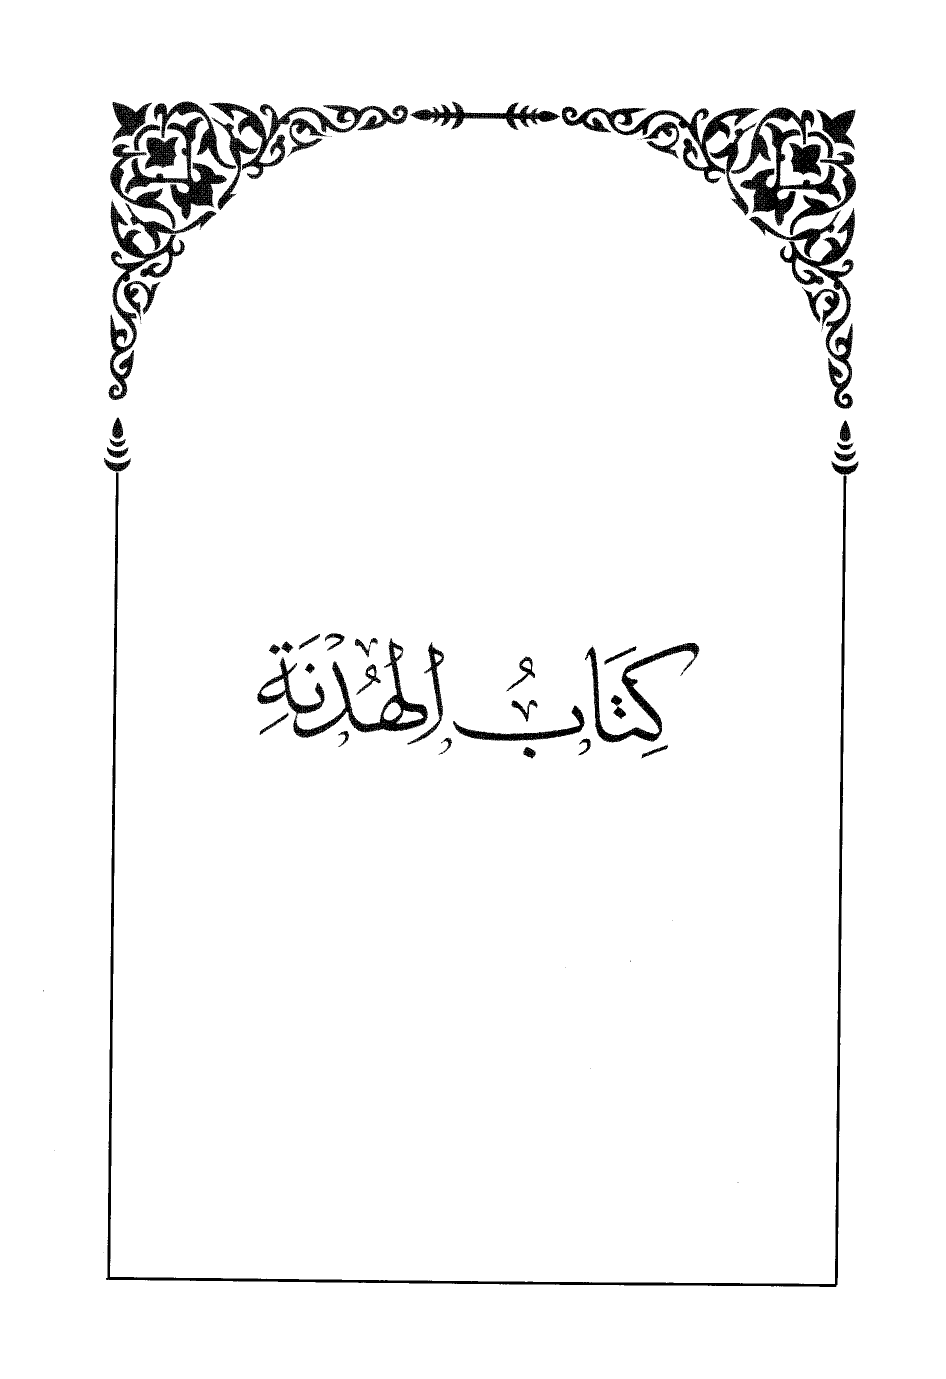 كِتَابُ الهُدْنَةِ